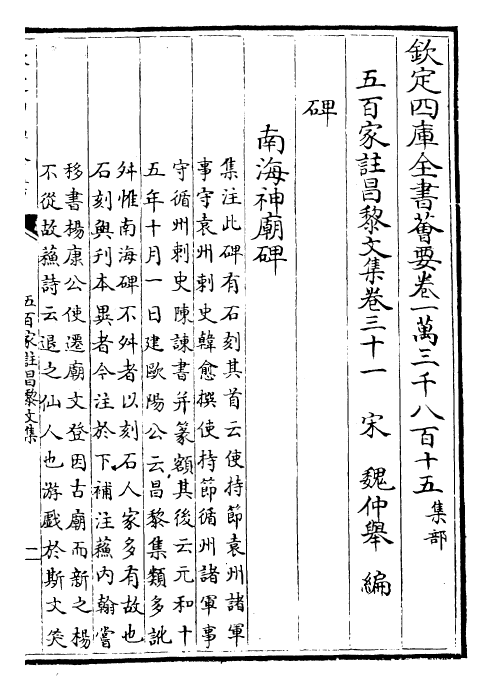 欽定四庫全書薈要卷一萬三千八百十五 集部
五百家註昌黎文集卷三十一 宋 魏仲舉 編
碑
南海神廟碑
集注此碑有石刻其首云使持節袁州諸軍
事守袁州刺史韓愈撰使持節循州諸軍事
守循州刺史陳諫書并篆額其後云元和十
五年十月一日建歐陽公云昌黎集類多訛
舛惟南海碑不舛者以刻石人家多有故也
石刻與刊本異者今注於下補注蘓內翰嘗
移書楊康公使遷廟文登因古廟而新之楊
不從故蘓詩云退之仙人也游戲於斯文笑
五百家註昌黎文集
一